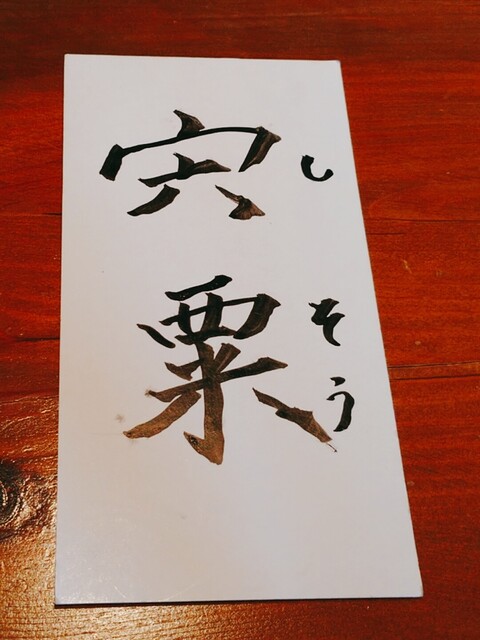 宍粟
しそう